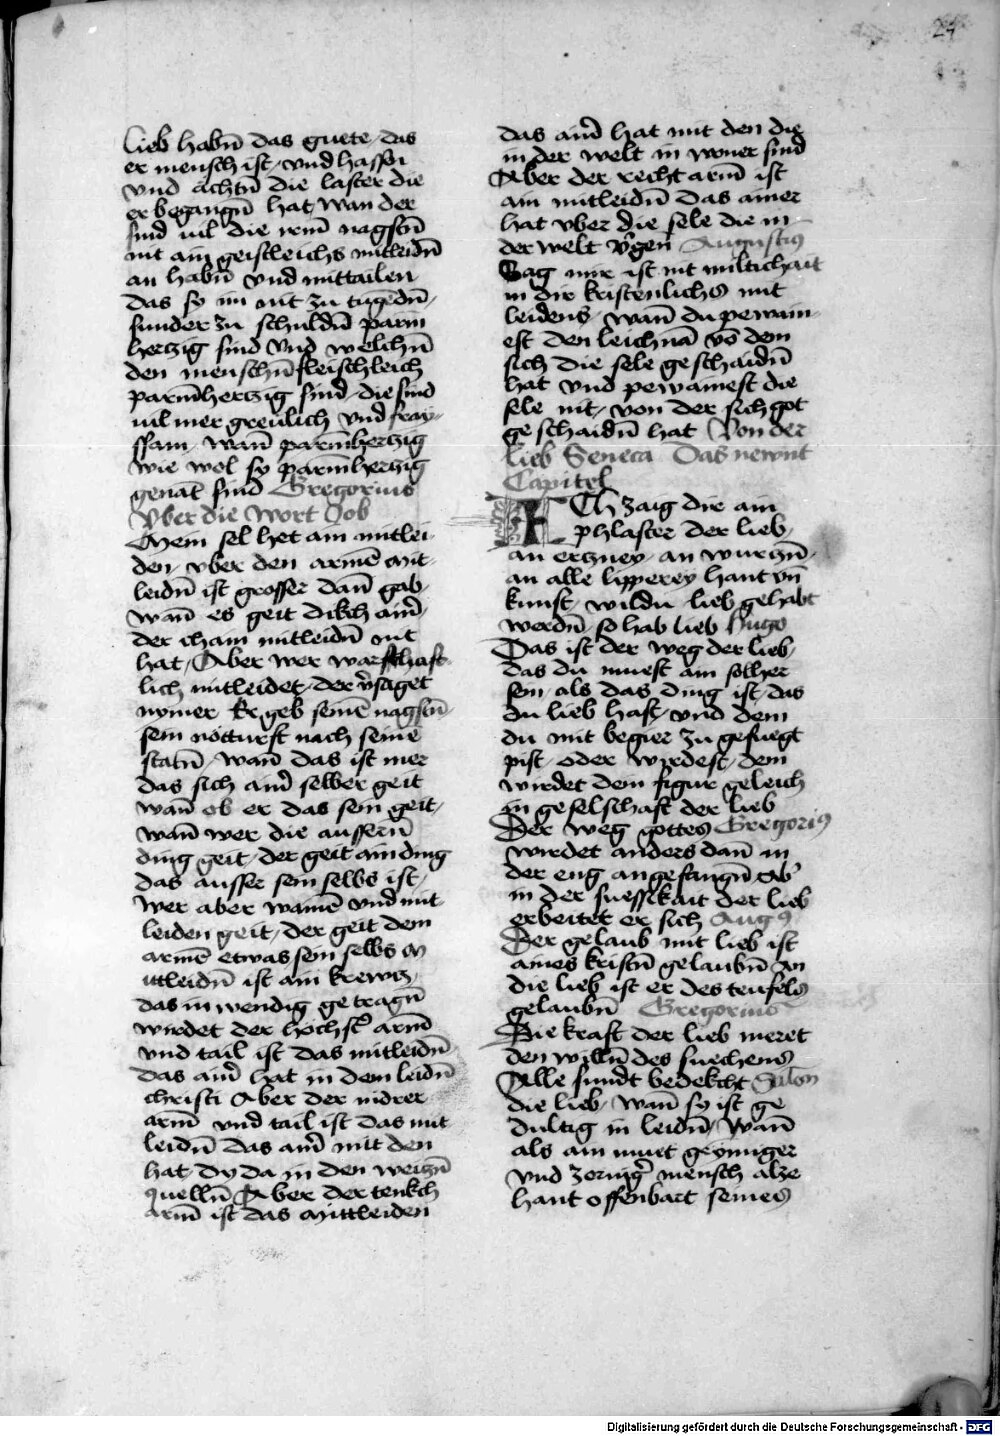 24
lieb habn̄ das guete / das
er mensch ist / vnd hassn̄
vnd achtn̄ die laster die
er begangn̄ hat / wan der
sind uil die irm̄ nagstn̄
nit ain geistleichs mitleidn̄
an habn̄ vnd mittailen
das sy im nit zu tugedn̄ /
sunder zu schuldn̄ parm
herczig sind Vnd welichn̄
den menschn̄ fleischleich
parmherczig sind / die sind
uil mer greulich vnd fray
ssam / wan̄ parmherczig
wie wol sy parmherczig
genāt sind Gregorius
Vber die wort Job
Mein sel het ain mitlei
den / vber den armē Mit
leidn̄ ist grosser dan̄ gab /
wan̄ es geit dikch ain̄
der icham mitleidn̄ nit
hat / Aber wer warhhaft
lich mitleidet / der v̄saget
nymer Er geb seinē nagstn̄
sein notturft nach seinē
statn̄ / wan̄ das ist mer
das sich ain̄ selber geit
wan̄ ob er das sein geit /
wan̄ wer die aussern̄
ding geit / der geit ain ding
das ausser sein selbs ist /
wer aber wainē vnd mit
leiden geit / der geit dem
armē etwas sein selbs M
ittleidn̄ ist ain krewcz /
das inwendig getragn̄
wirdet der hochst arm̄
vnd tail ist das mitleidn̄
das ain̄ hat in dem leidn̄
christi Aber der nidrer
arm̄ vnd tail ist das mit
leidn̄ das ain̄ mit den
hat / dy da in den weiczn̄
quelln̄ Aber der tenkch
arm̄ ist das Mittleiden
das ain̄ hat mit den die
in der welt in woner sind
Aber der recht arm̄ ist
ain mitleidn̄ das ainer
hat vber die sele die in
der welt v̄gen Augustiꝰ
Sag mir ist nit miltichait
in dir kristenlichs mit
leidens / wan̄ du pewain
est den leichnā vō dem
sich die sele geschaidn̄
hat vnd pewainest die
sele nit / von der sich got
geschaidn̄ hat Von der
lieb Seneca Das newnt
Capitel
ICh zaig die ain
phlaster der lieb /
an erczney / an wurczn̄ /
an alle lipperey hant vn̄
kunst / wildu lieb gehabt
werdn̄ / so hab lieb Hugo
Das ist der weg der lieb /
das du muest ain solher
sein / als das ding ist / das
du lieb hast / vnd dem
du mit begier zu gefuegt
pist / oder wirdest / dem
wirdet dem figur geleich
in geselschaft der lieb
Der weg gottes Gregoriꝰ
wirdet anders dan̄ in
der eng angefangn̄ Ab'
in der suessikait der lieb
erbeitet er sich Augꝰ
Der gelaub mit lieb ist
aines kristn̄ gelaubn̄ An
die lieb ist er des teufels
gelaubn̄ Gregorius
Die kraft der lieb meret
den willn̄ des suechens
Alle sundt bedekcht Salon
die lieb / Wan̄ sy ist ge
dultig in leidn̄ / Wan̄
als ain muet geyniger
vnd zorniḡ mensch alze
hant offenbart seines
Digitalisierung gefördert durch die Deutsche Forschungsgemeinschaft - DFG